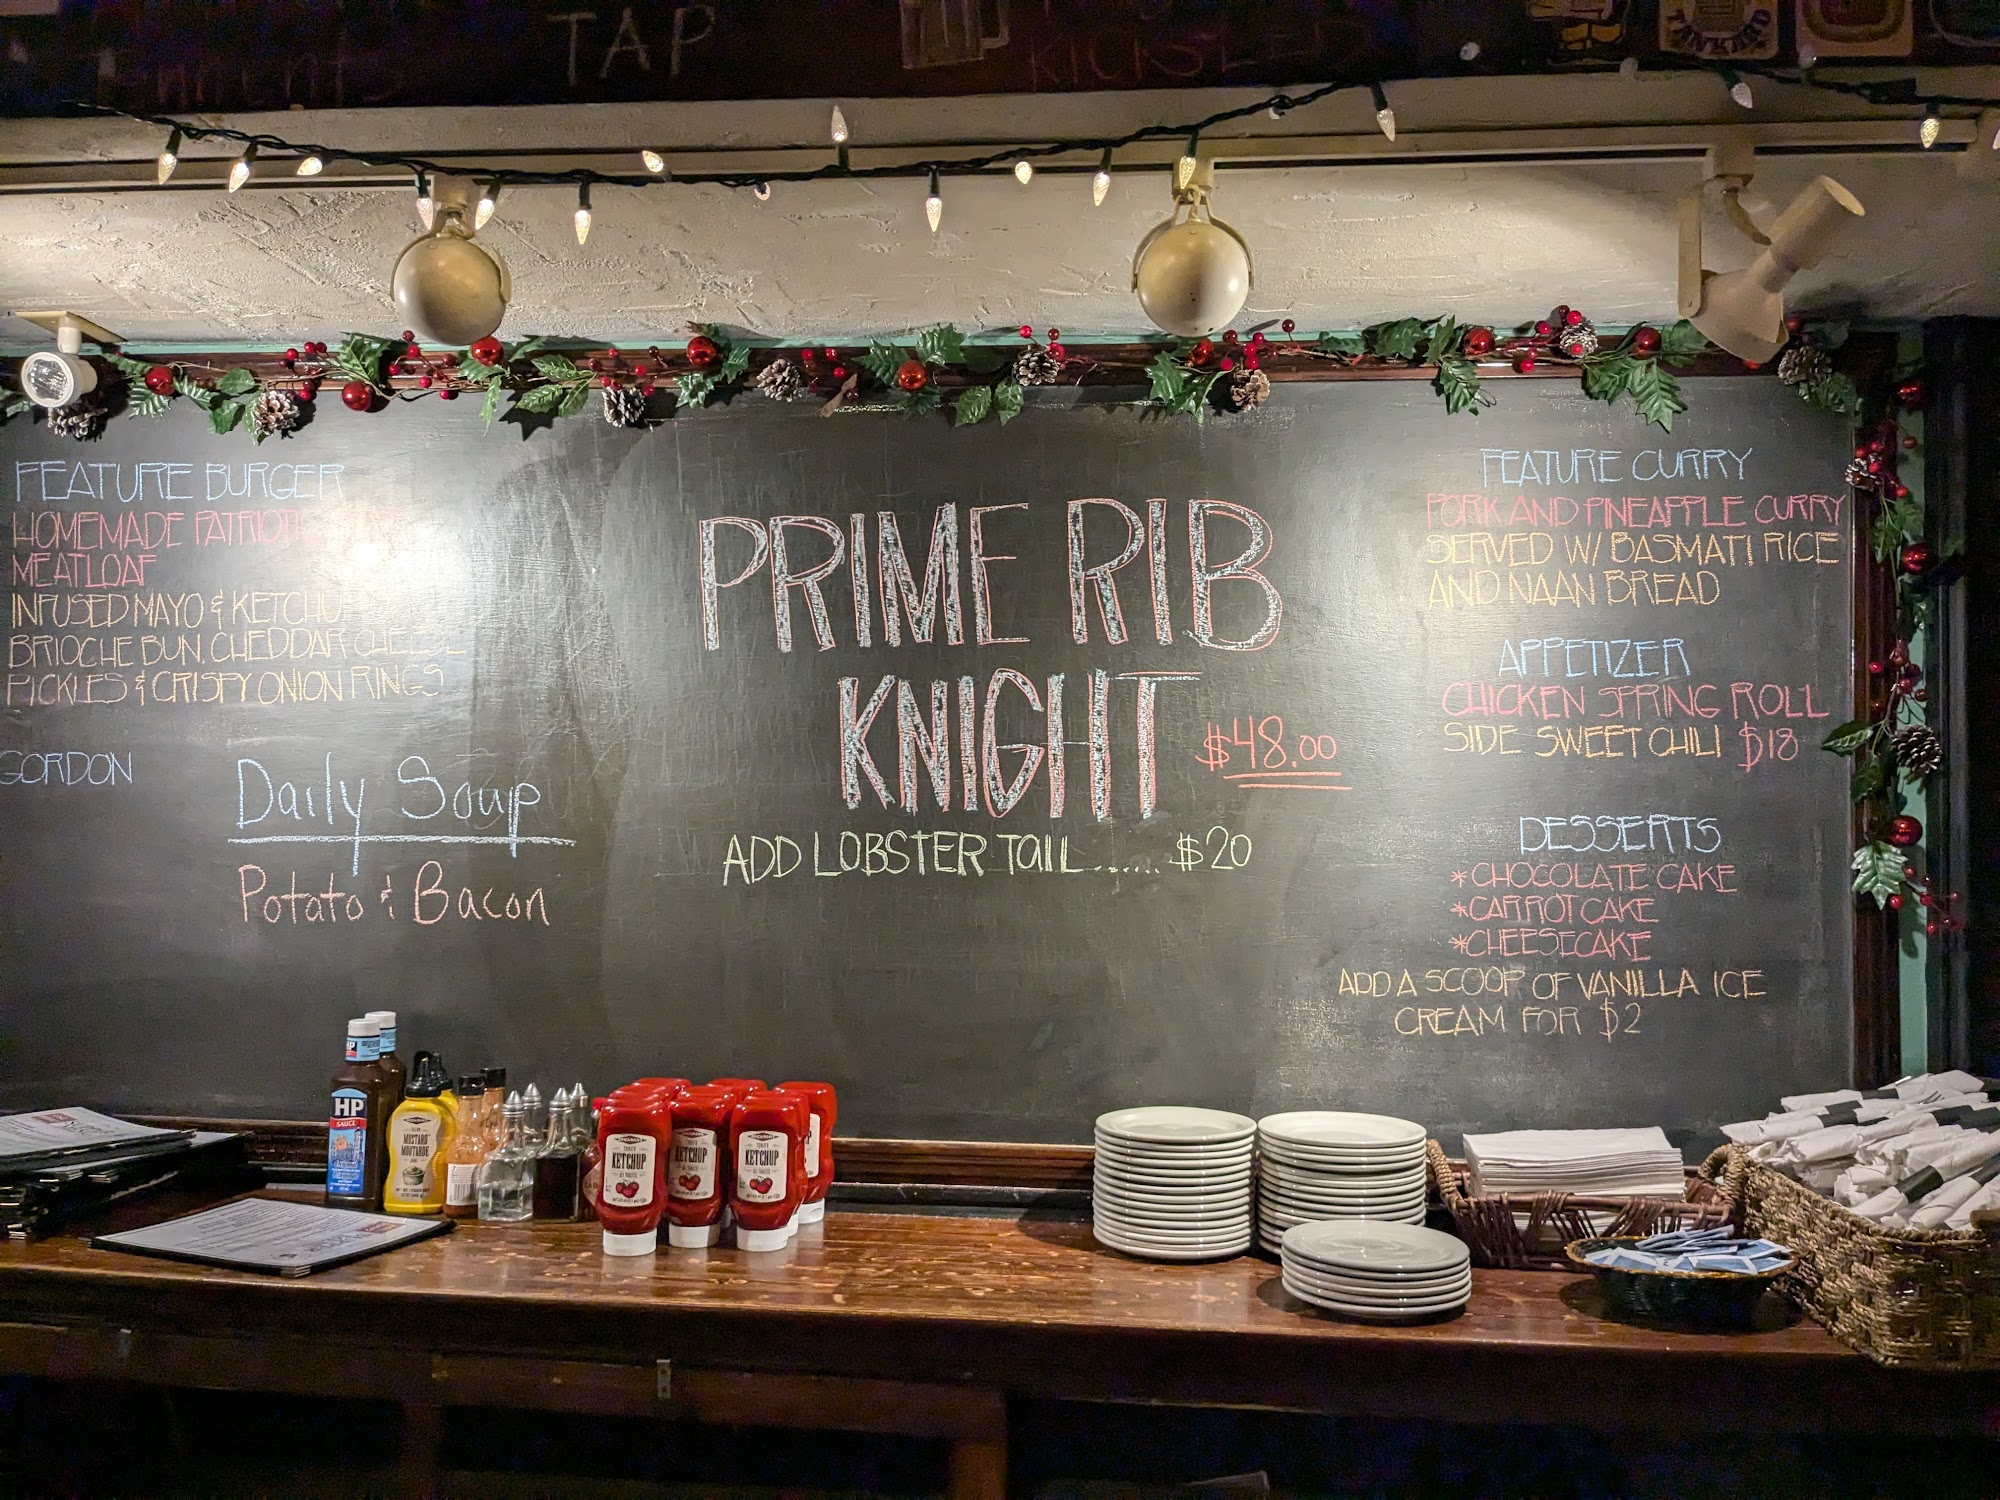 TAP
TANKARD
FEATURE BURGER
HOMEMADE
MEATLOAF
INFUSED MAYO & KETCHUP
BRIOCHE BUN, CHEDDAR CHEESE
PICKLES & CRISPY ONION RINGS
GORDON
Daily Soup
Potato & Bacon
PRIME RIB
KNIGHT $48.00
ADD LOBSTER TAIL...... $20
FEATURE CURRY
PORK AND PINEAPPLE CURRY
SERVED W/ BASMATI RICE
AND NAAN BREAD
APPETIZER
CHICKEN SPRING ROLL
SIDE SWEET CHILI $18
DESSERTS
*CHOCOLATE CAKE
*CARROT CAKE
*CHEESECAKE
ADD A SCOOP OF VANILLA ICE
CREAM FOR $2
HP
SAUCE
MUSTARD
MOUTARDE
KETCHUP
KETCHUP
KETCHUP